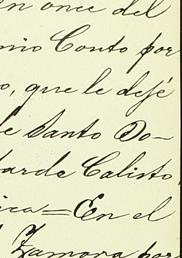 en once del
nio Conto por
o, que le dejé
e Santo Do-
tarde Calisto,
ica = En el
Zamora por